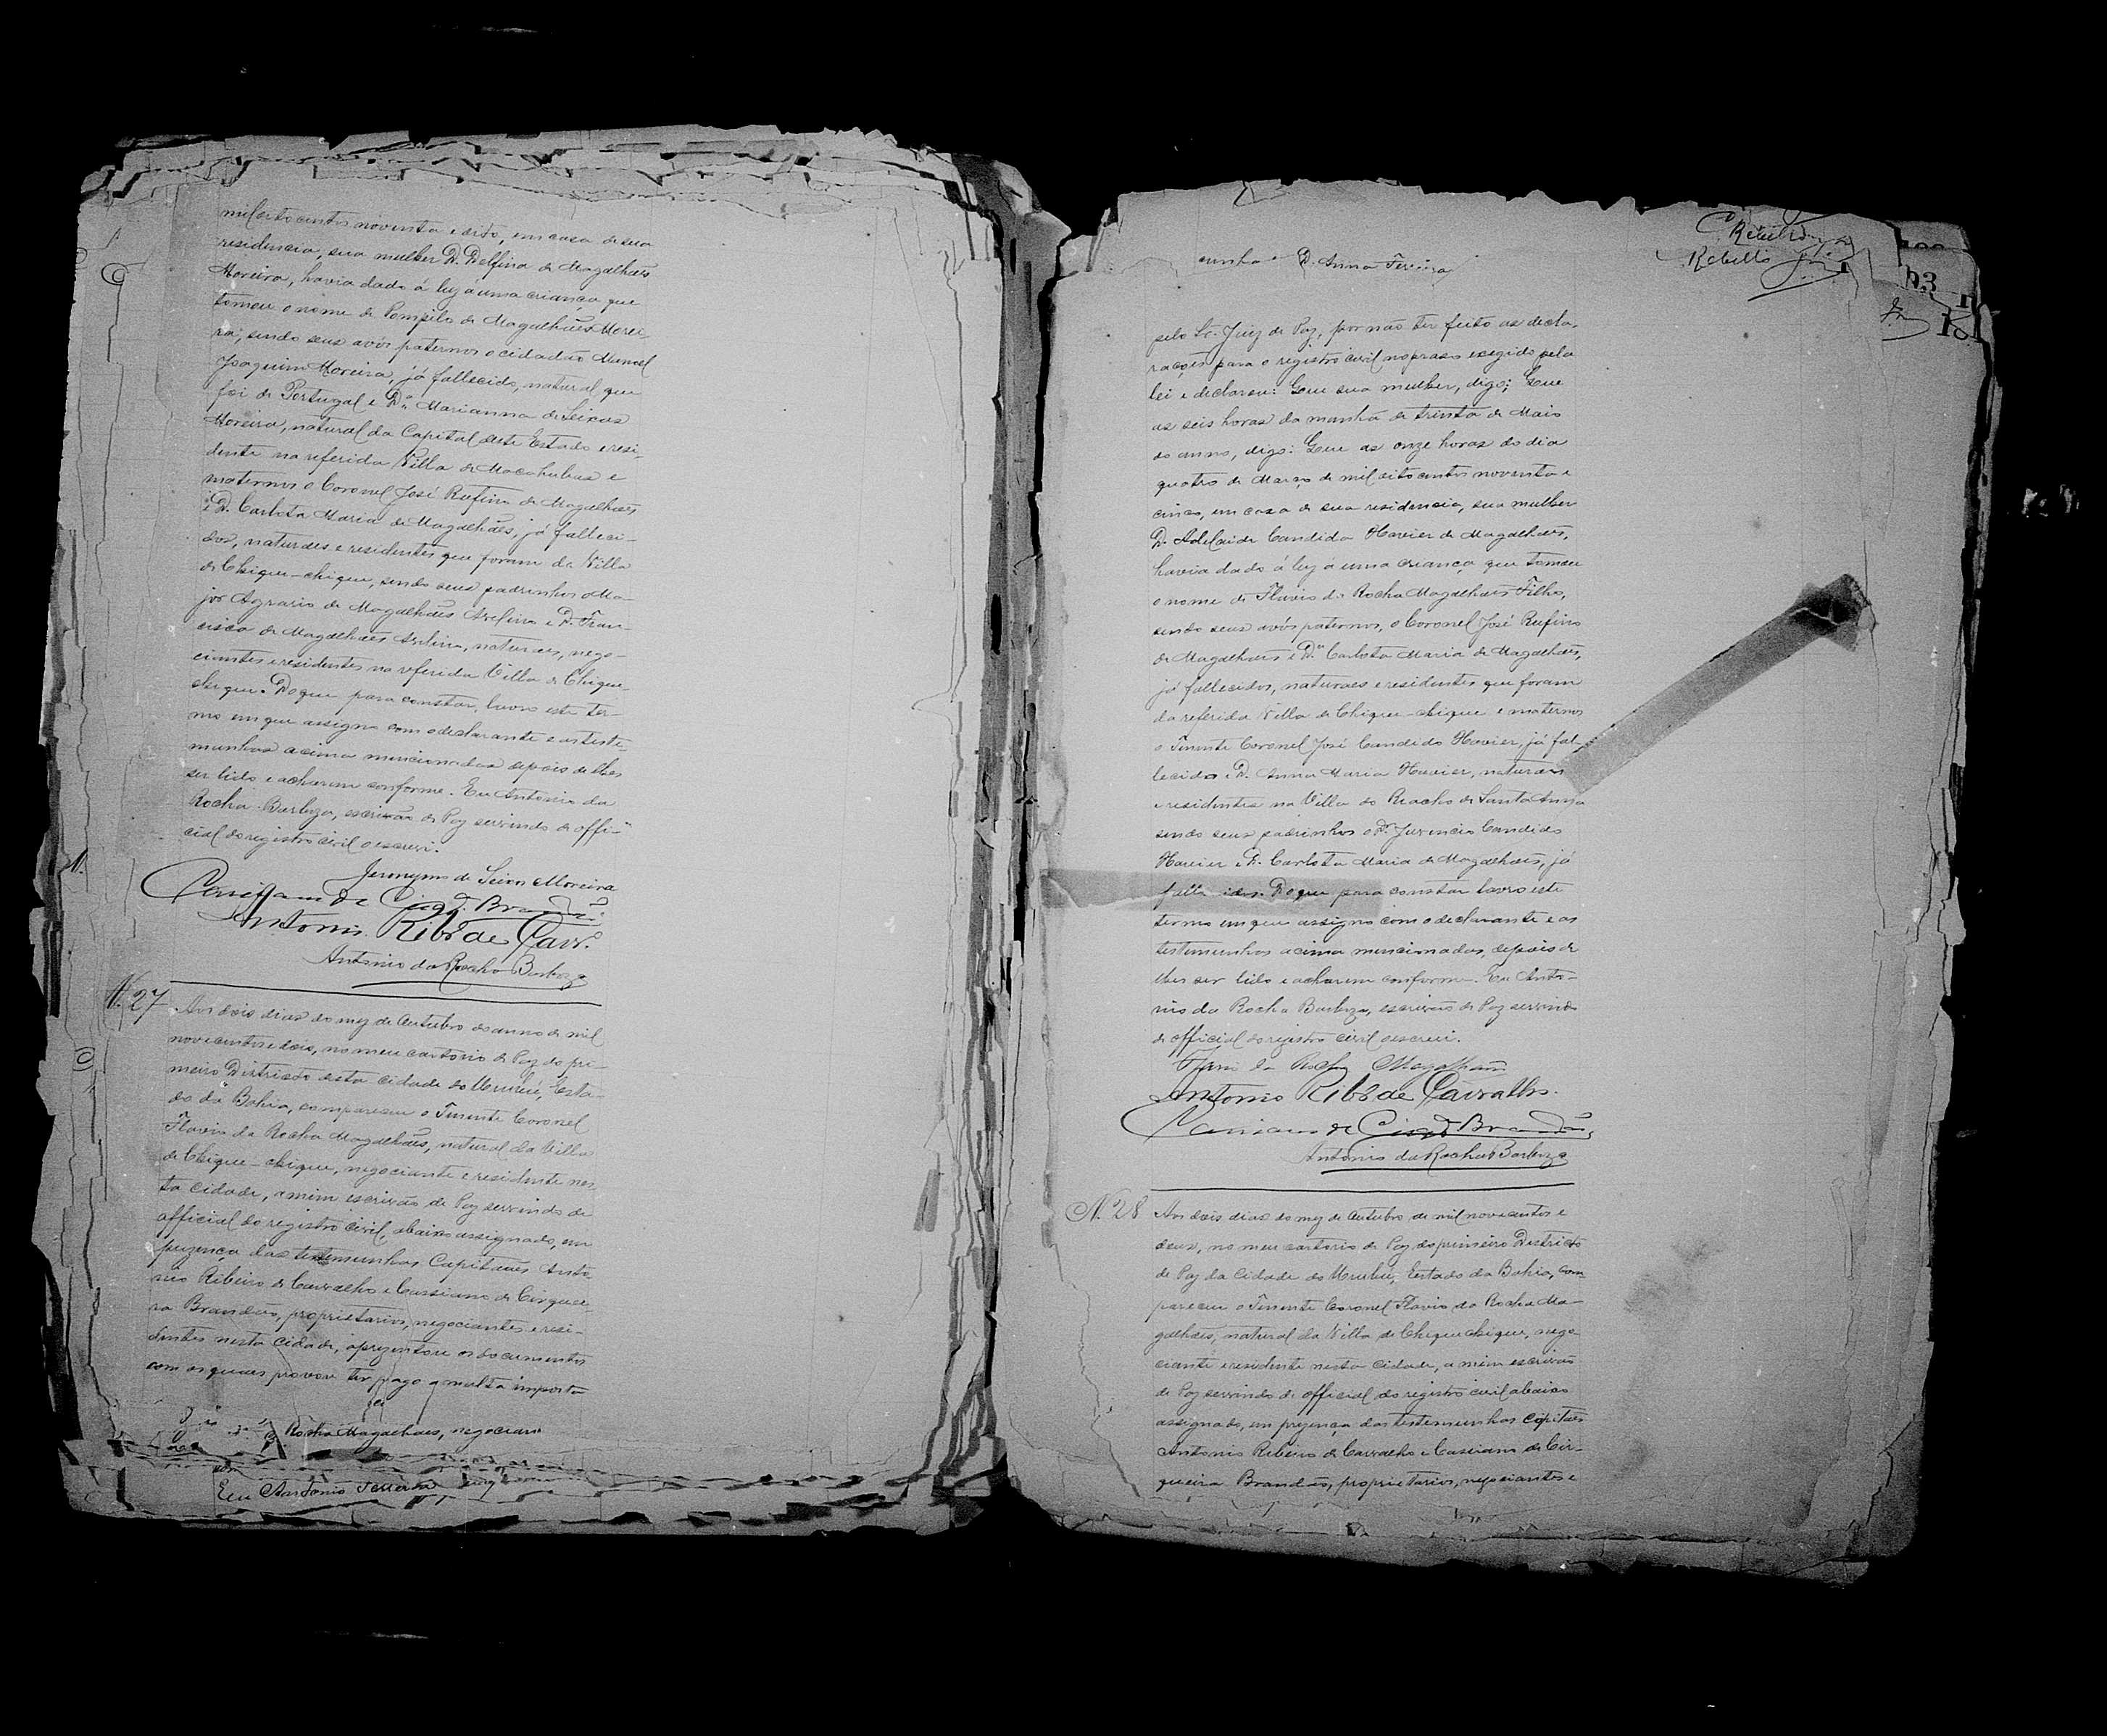 mil oito centos noventa e oito, em casa de sua
residencia, sua mulher D. Delfina de Magalhães
Moreira, havia dado á luz á uma criança que
tomou o nome de Pompilo de Magalhães Morei-
ra, sendo seus avós paternos o cidadão Manoel
Joaquim Moreira, já fallecido, natural que
foi de Portugal e Dª Marianna de Seixas
Moreira, natural da Capital deste Estado e resi-
dente na referida Villa de Macahubas e
maternos o Coronel José Rufino de Magalhães
e D. Carlota Maria de Magalhães, já falleci-
dos, naturaes e residentes que foram da Villa
de Chique-chique, sendo seus padrinhos o Ma-
jor Agrario de Magalhães Avelino e D. Fran-
cisca de Magalhães Avelino, naturaes, nego-
ciantes e residentes na referida Villa de Chique-
chique. Do que para constar, lavro este ter-
mo em que assigna com o declarante e as teste-
munhas acima mencionadas depois de lhes
ser lido e acharem conforme. Eu Antonio da
Rocha Barboza, escrivão de Paz servindo de offi-
cial do registro civil o escrevi.
Jeronymo de Seixas Moreira
Cassiano de Cirqª Brandão
Antonio Ribº de Carvº
Antonio da Rocha Barboza
N. 27 Aos dois dias do mez de Outubro do anno de mil
novecentos e dois, no meu cartorio de Paz do pri-
meiro Districto desta cidade do Urubú, Esta-
do da Bahia, compareceu o Tenente Coronel
Flavio da Rocha Magalhães, natural da Villa
de Chique-chique, negociante e residente nes-
ta cidade, a mim escrivão de Paz servindo de
official do registro civil, abaixo assignado, em
prezença das testemunhas Capitães Anto-
nio Ribeiro de Carvalho e Cassiano de Cirquei-
ra Brandão, proprietarios, negociantes e resi-
dentes nesta cidade, aprezentou os documentos
com os quaes provou ter pago a multa imposta
Rocha Magalhães, negociante
Eu Antonio Ferreira
cunha e D. Anna Ferreira
Rebello
pelo Sr. Juiz de Paz, por não ter feito as decla-
rações para o registro civil no praso exegido pela
lei e declarou: Que sua mulher, digo; Que
as seis horas da manhã de trinta de Maio
do anno, digo: Que as onze horas do dia
quatro de Março de mil oitocentos noventa e
cinco, em casa de sua residencia, sua mulher
D. Adelaide Candida Xavier de Magalhães,
havia dado á luz á uma criança que tomou
o nome de Flavio da Rocha Magalhães Filho,
sendo seus avós paternos, o Coronel José Rufino
de Magalhães e Dª Carlota Maria de Magalhães,
já fallecidos, naturaes e residentes que foram
da referida Villa de Chique-chique e maternos
o Tenente Coronel José Candido Xavier, já fal-
lecido e D. Anna Maria Xavier, naturaes
e residentes na Villa do Riacho de Santa Anna
sendo seus padrinhos o Dr. Juvencio Candido
Xavier e D. Carlota Maria de Magalhães, já
fallecidos. Do que para constar lavro este
termo em que assigna com o declarante e as
testemunhas acima mencionadas, depois de
lhes ser lido e acharem conforme. Eu Anto-
nio da Rocha Barboza, escrivão de Paz servindo
de official do registro civil o escrevi.
Flavio da Rocha Magalhães
Antonio Ribº de Carvalho.
Cassiano de Cirqª Brandão
Antonio da Rocha Barboza
N. 28 Aos dois dias do mez de Outubro de mil novecentos e
dous, no meu cartorio de Paz do primeiro Districto
de Paz da Cidade do Urubú, Estado da Bahia, com-
pareceu o Tenente Coronel Flavio da Rocha Ma-
galhães, natural da Villa de Chique chique, nego-
ciante e residente nesta cidade, a mim escrivão
de Paz servindo de official do registro civil abaixo
assignado, em prezença das testemunhas Capitães
Antonio Ribeiro de Carvalho e Cassiano de Cir-
queira Brandão, proprietarios, negociantes e